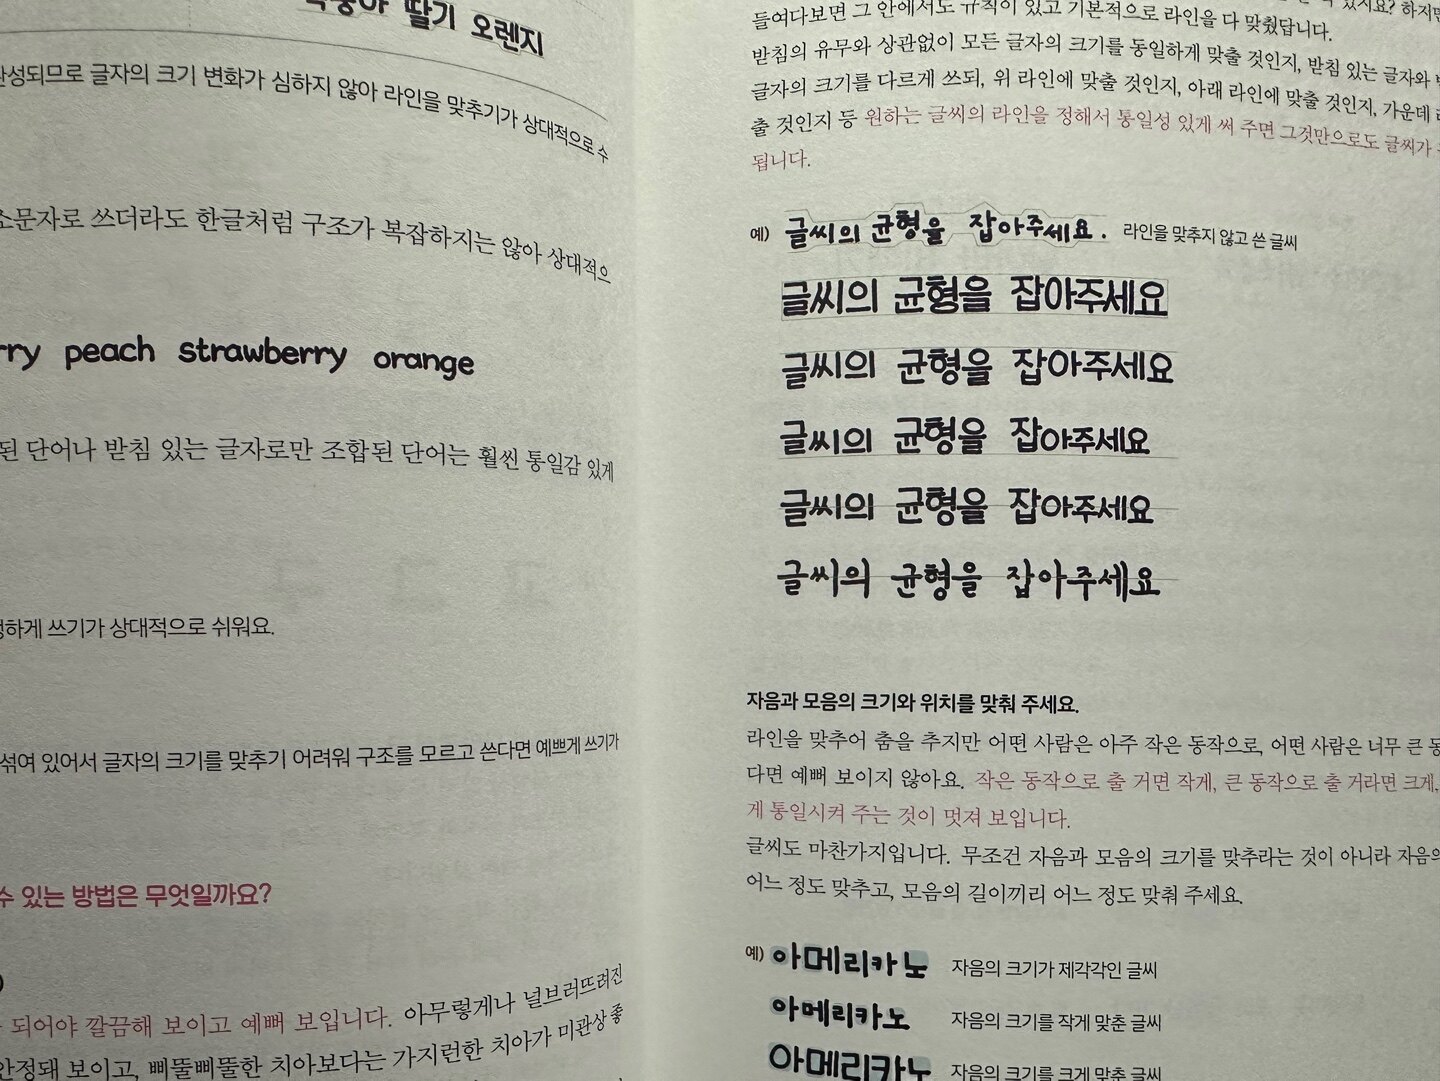 딸기 오렌지
완성되므로 글자의 크기 변화가 심하지 않아 라인을 맞추기가 상대적으로 수
소문자로 쓰더라도 한글처럼 구조가 복잡하지는 않아 상대적으
rry peach strawberry orange
된 단어나 받침 있는 글자로만 조합된 단어는 훨씬 통일감 있게
하게 쓰기가 상대적으로 쉬워요.
섞여 있어서 글자의 크기를 맞추기 어려워 구조를 모르고 쓴다면 예쁘게 쓰기가
수 있는 방법은 무엇일까요?
되어야 깔끔해 보이고 예뻐 보입니다. 아무렇게나 널브러뜨려진
안정돼 보이고, 삐뚤삐뚤한 치아보다는 가지런한 치아가 미관상 좋
들여다보면 그 안에서도 규칙이 있고 기본적으로 라인을 다 맞췄답니다.
받침의 유무와 상관없이 모든 글자의 크기를 동일하게 맞출 것인지, 받침 있는 글자와
글자의 크기를 다르게 쓰되, 위 라인에 맞출 것인지, 아래 라인에 맞출 것인지, 가운데
출 것인지 등 원하는 글씨의 라인을 정해서 통일성 있게 써 주면 그것만으로도 글씨가
됩니다.
예) 글씨의 균형을 잡아주세요. 라인을 맞추지 않고 쓴 글씨
글씨의 균형을 잡아주세요
글씨의 균형을 잡아주세요
글씨의 균형을 잡아주세요
글씨의 균형을 잡아주세요
글씨의 균형을 잡아주세요
자음과 모음의 크기와 위치를 맞춰 주세요.
라인을 맞추어 춤을 추지만 어떤 사람은 아주 작은 동작으로, 어떤 사람은 너무 큰 동
다면 예뻐 보이지 않아요. 작은 동작으로 출 거면 작게, 큰 동작으로 출 거라면 크게,
게 통일시켜 주는 것이 멋져 보입니다.
글씨도 마찬가지입니다. 무조건 자음과 모음의 크기를 맞추라는 것이 아니라 자음의
어느 정도 맞추고, 모음의 길이끼리 어느 정도 맞춰 주세요.
예) 아메리카노 자음의 크기가 제각각인 글씨
아메리카노 자음의 크기를 작게 맞춘 글씨
아메리카노 자음의 크기를 크게 맞춘 글씨